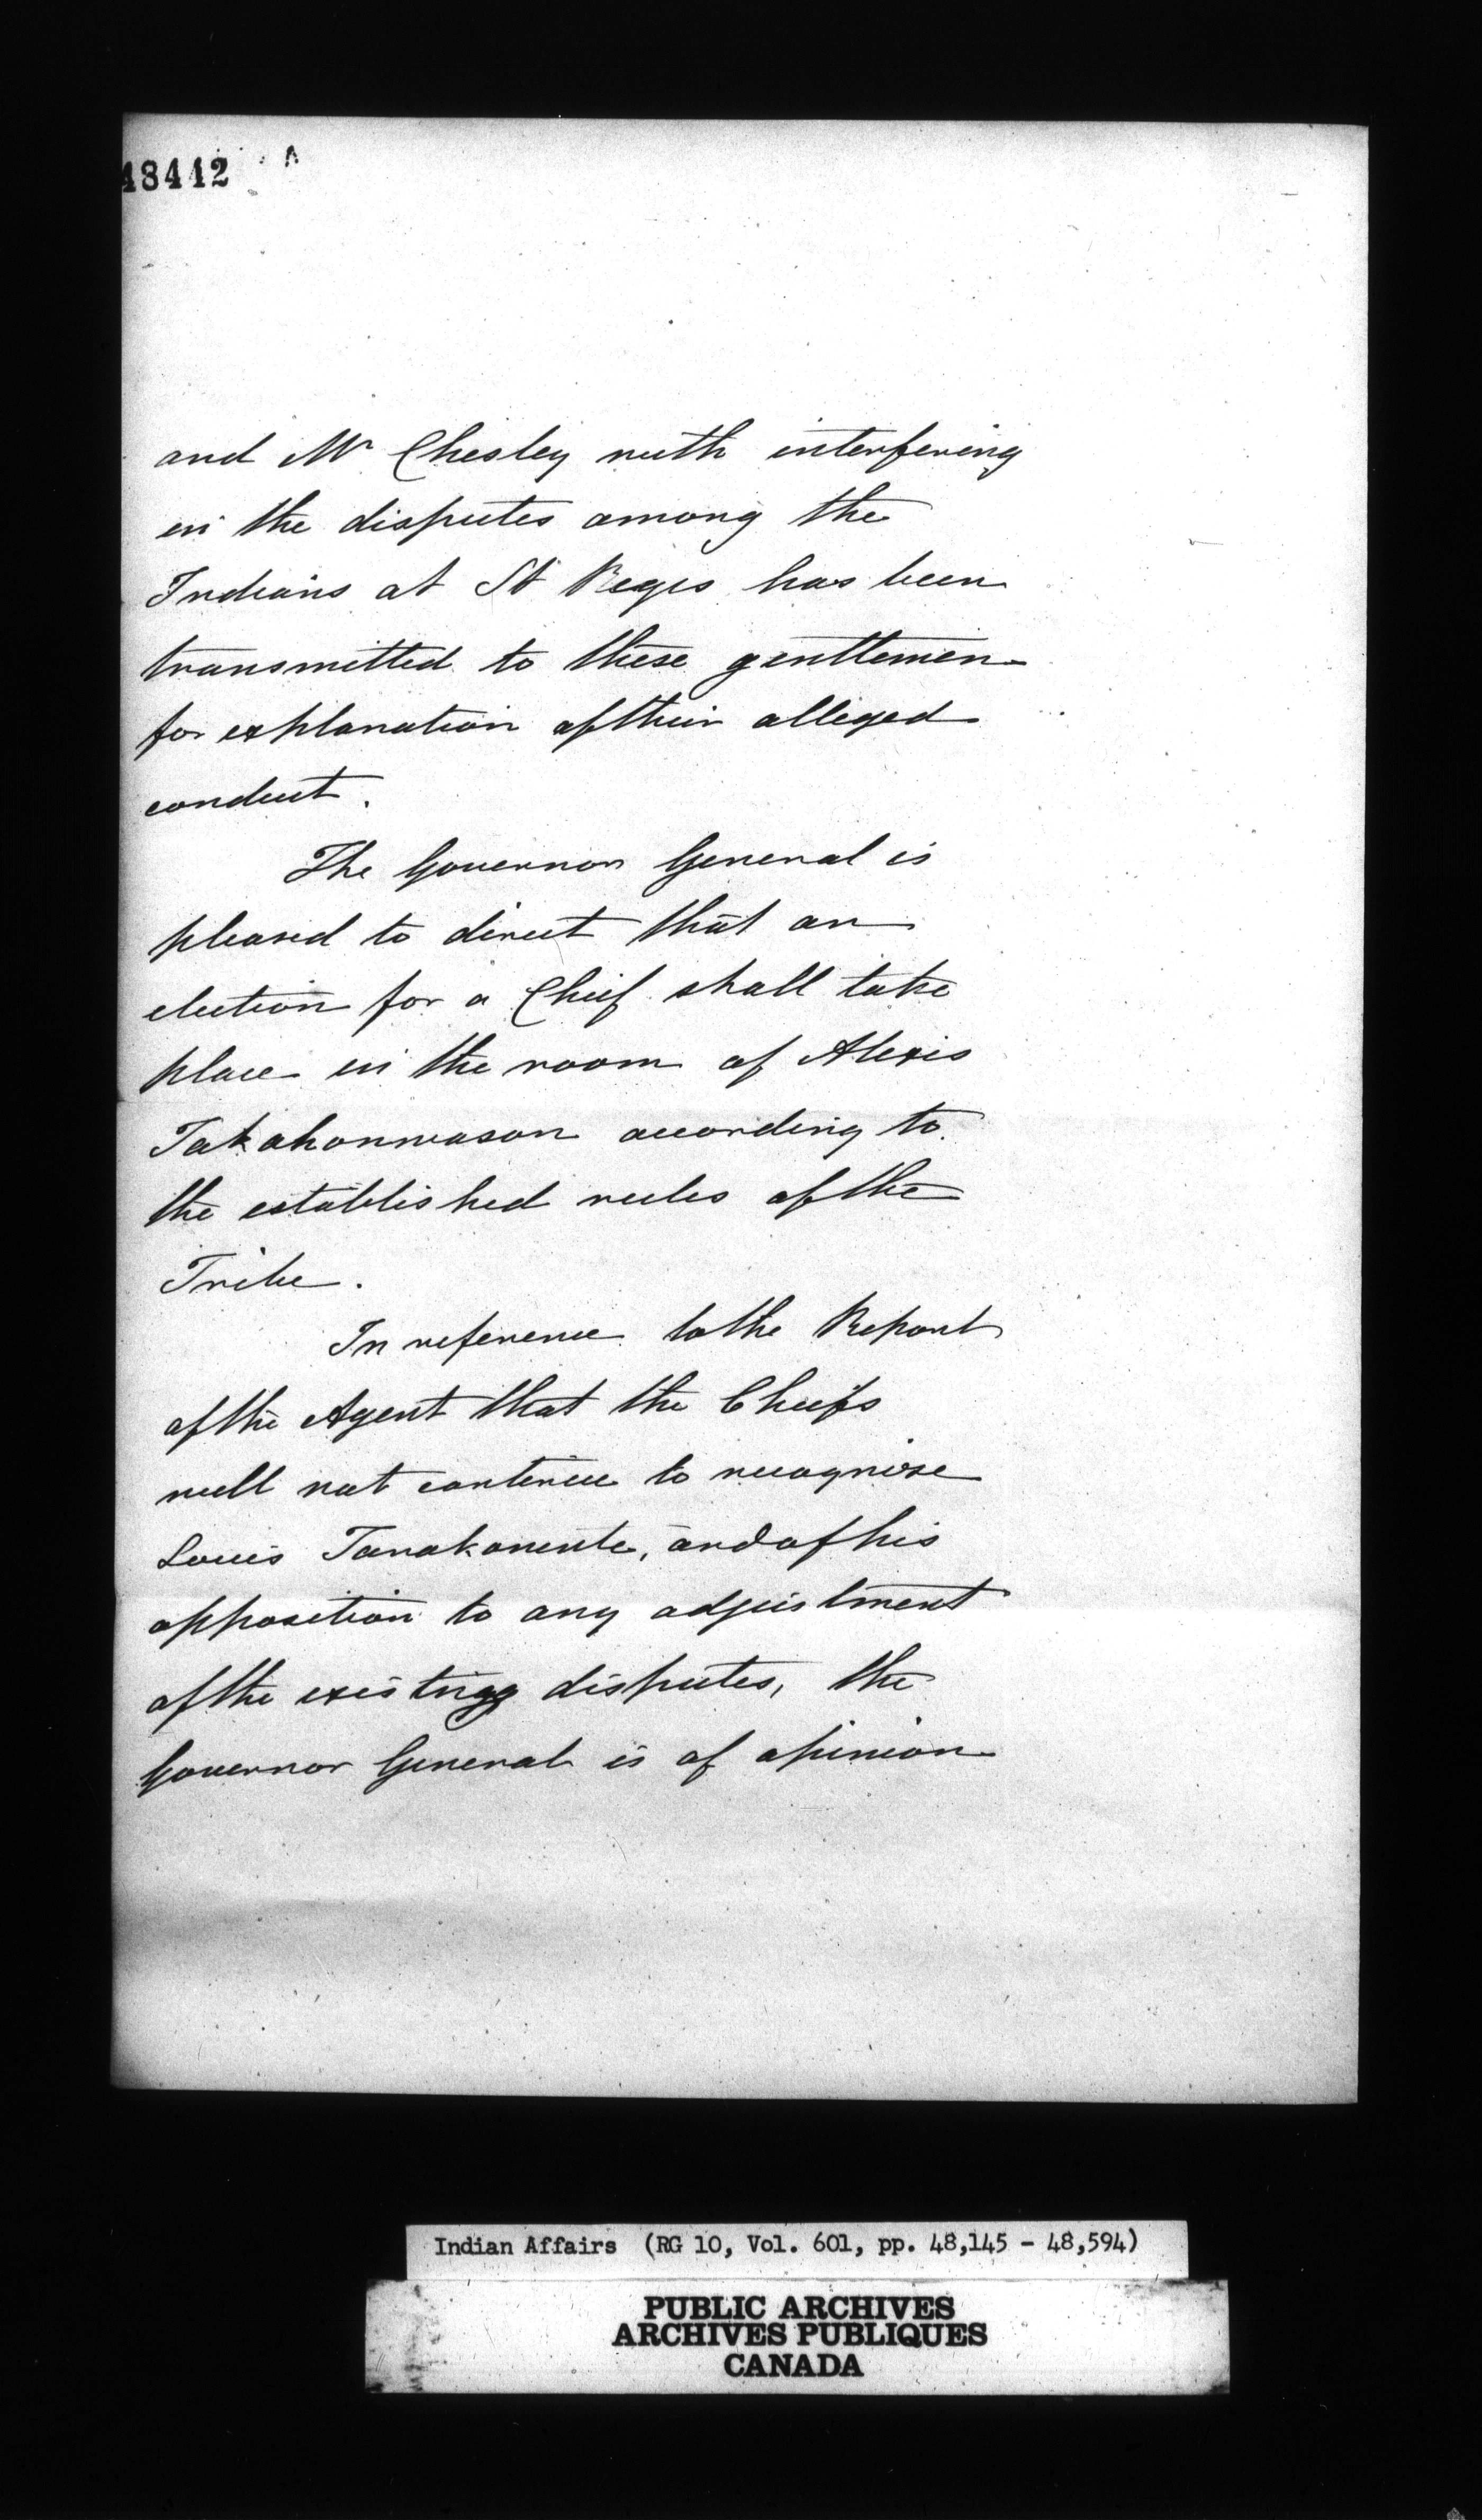 48442 A
and Mr Chesley with interfering
in the disputes among the
Indians at St Regis has been
transmitted to these gentlemen
for explanation of their alleged
conduct.
The Governor General is
pleased to direct that an
election for a Chief shall take
place in the room of Alexis
Takahonwason according to
the established rules of the
Tribe.
In reference to the Report
of the Agent that the Chiefs
will not continue to recognise
Louis Tanakonente, and of his
opposition to any adjustment
of the existing disputes, the
Governor General is of opinion
Indian Affairs (RG 10, Vol. 601, pp. 48,145 - 48,594)
PUBLIC ARCHIVES
ARCHIVES PUBLIQUES
CANADA